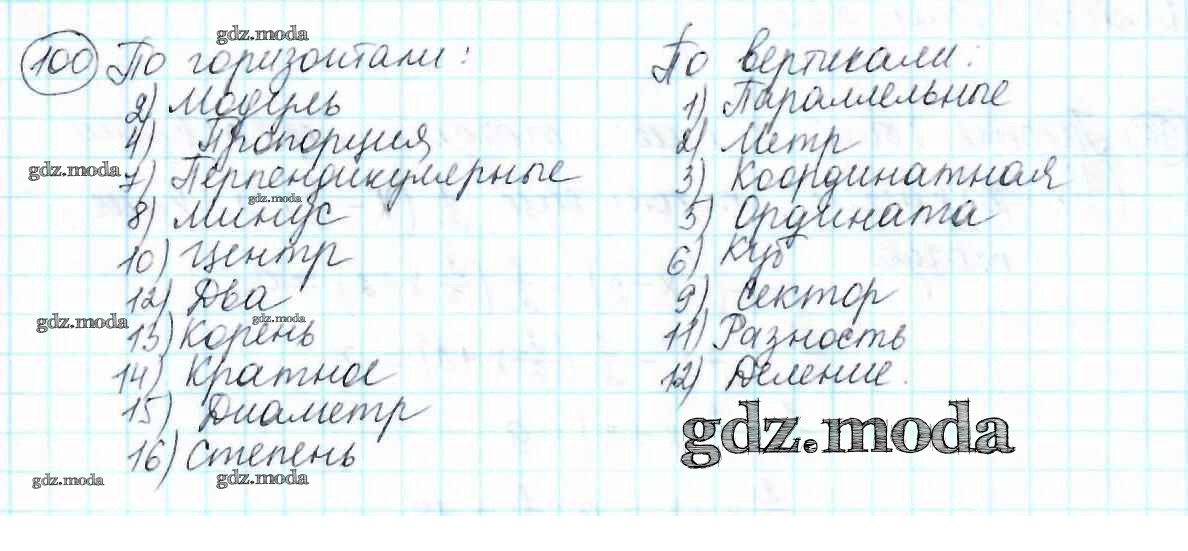 100 По горизонтали:
2) Модуль
4) Пропорция
7) Перпендикулярные
8) Минус
10) Центр
12) Два
13) Корень
14) Кратное
15) Диаметр
16) Степень
По вертикали:
1) Параллельные
2) Метр
3) Координатная
5) Ордината
6) Куб
9) Сектор
11) Разность
12) Деление.
gdz.moda
gdz.moda
gdz.moda
gdz.moda
gdz.moda
gdz.moda
gdz.moda
gdz.moda